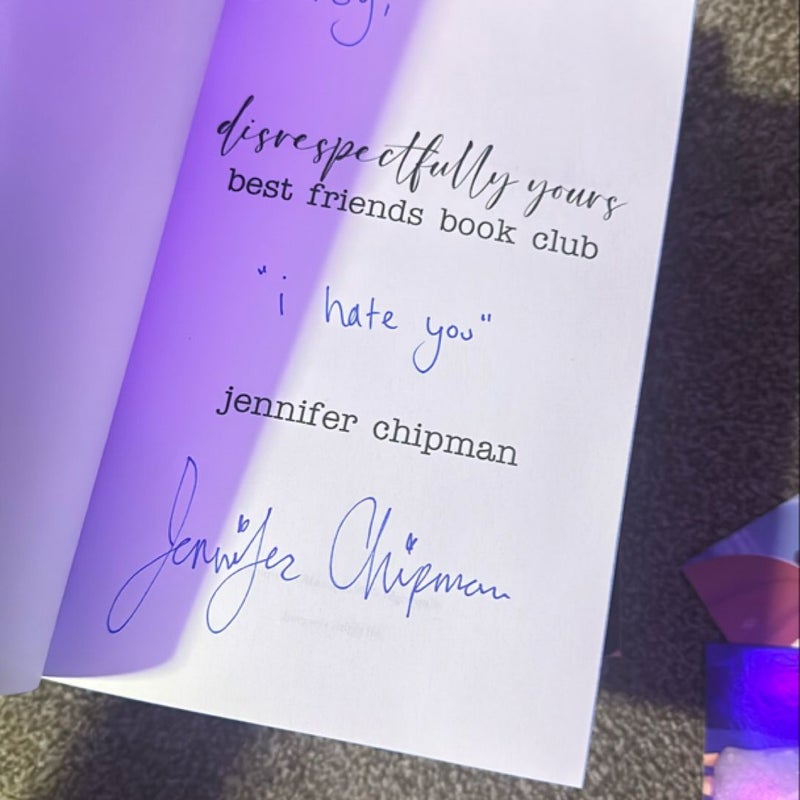 disrespectfully yours
best friends book club
"i hate you"
jennifer chipman
Jennifer Chipman